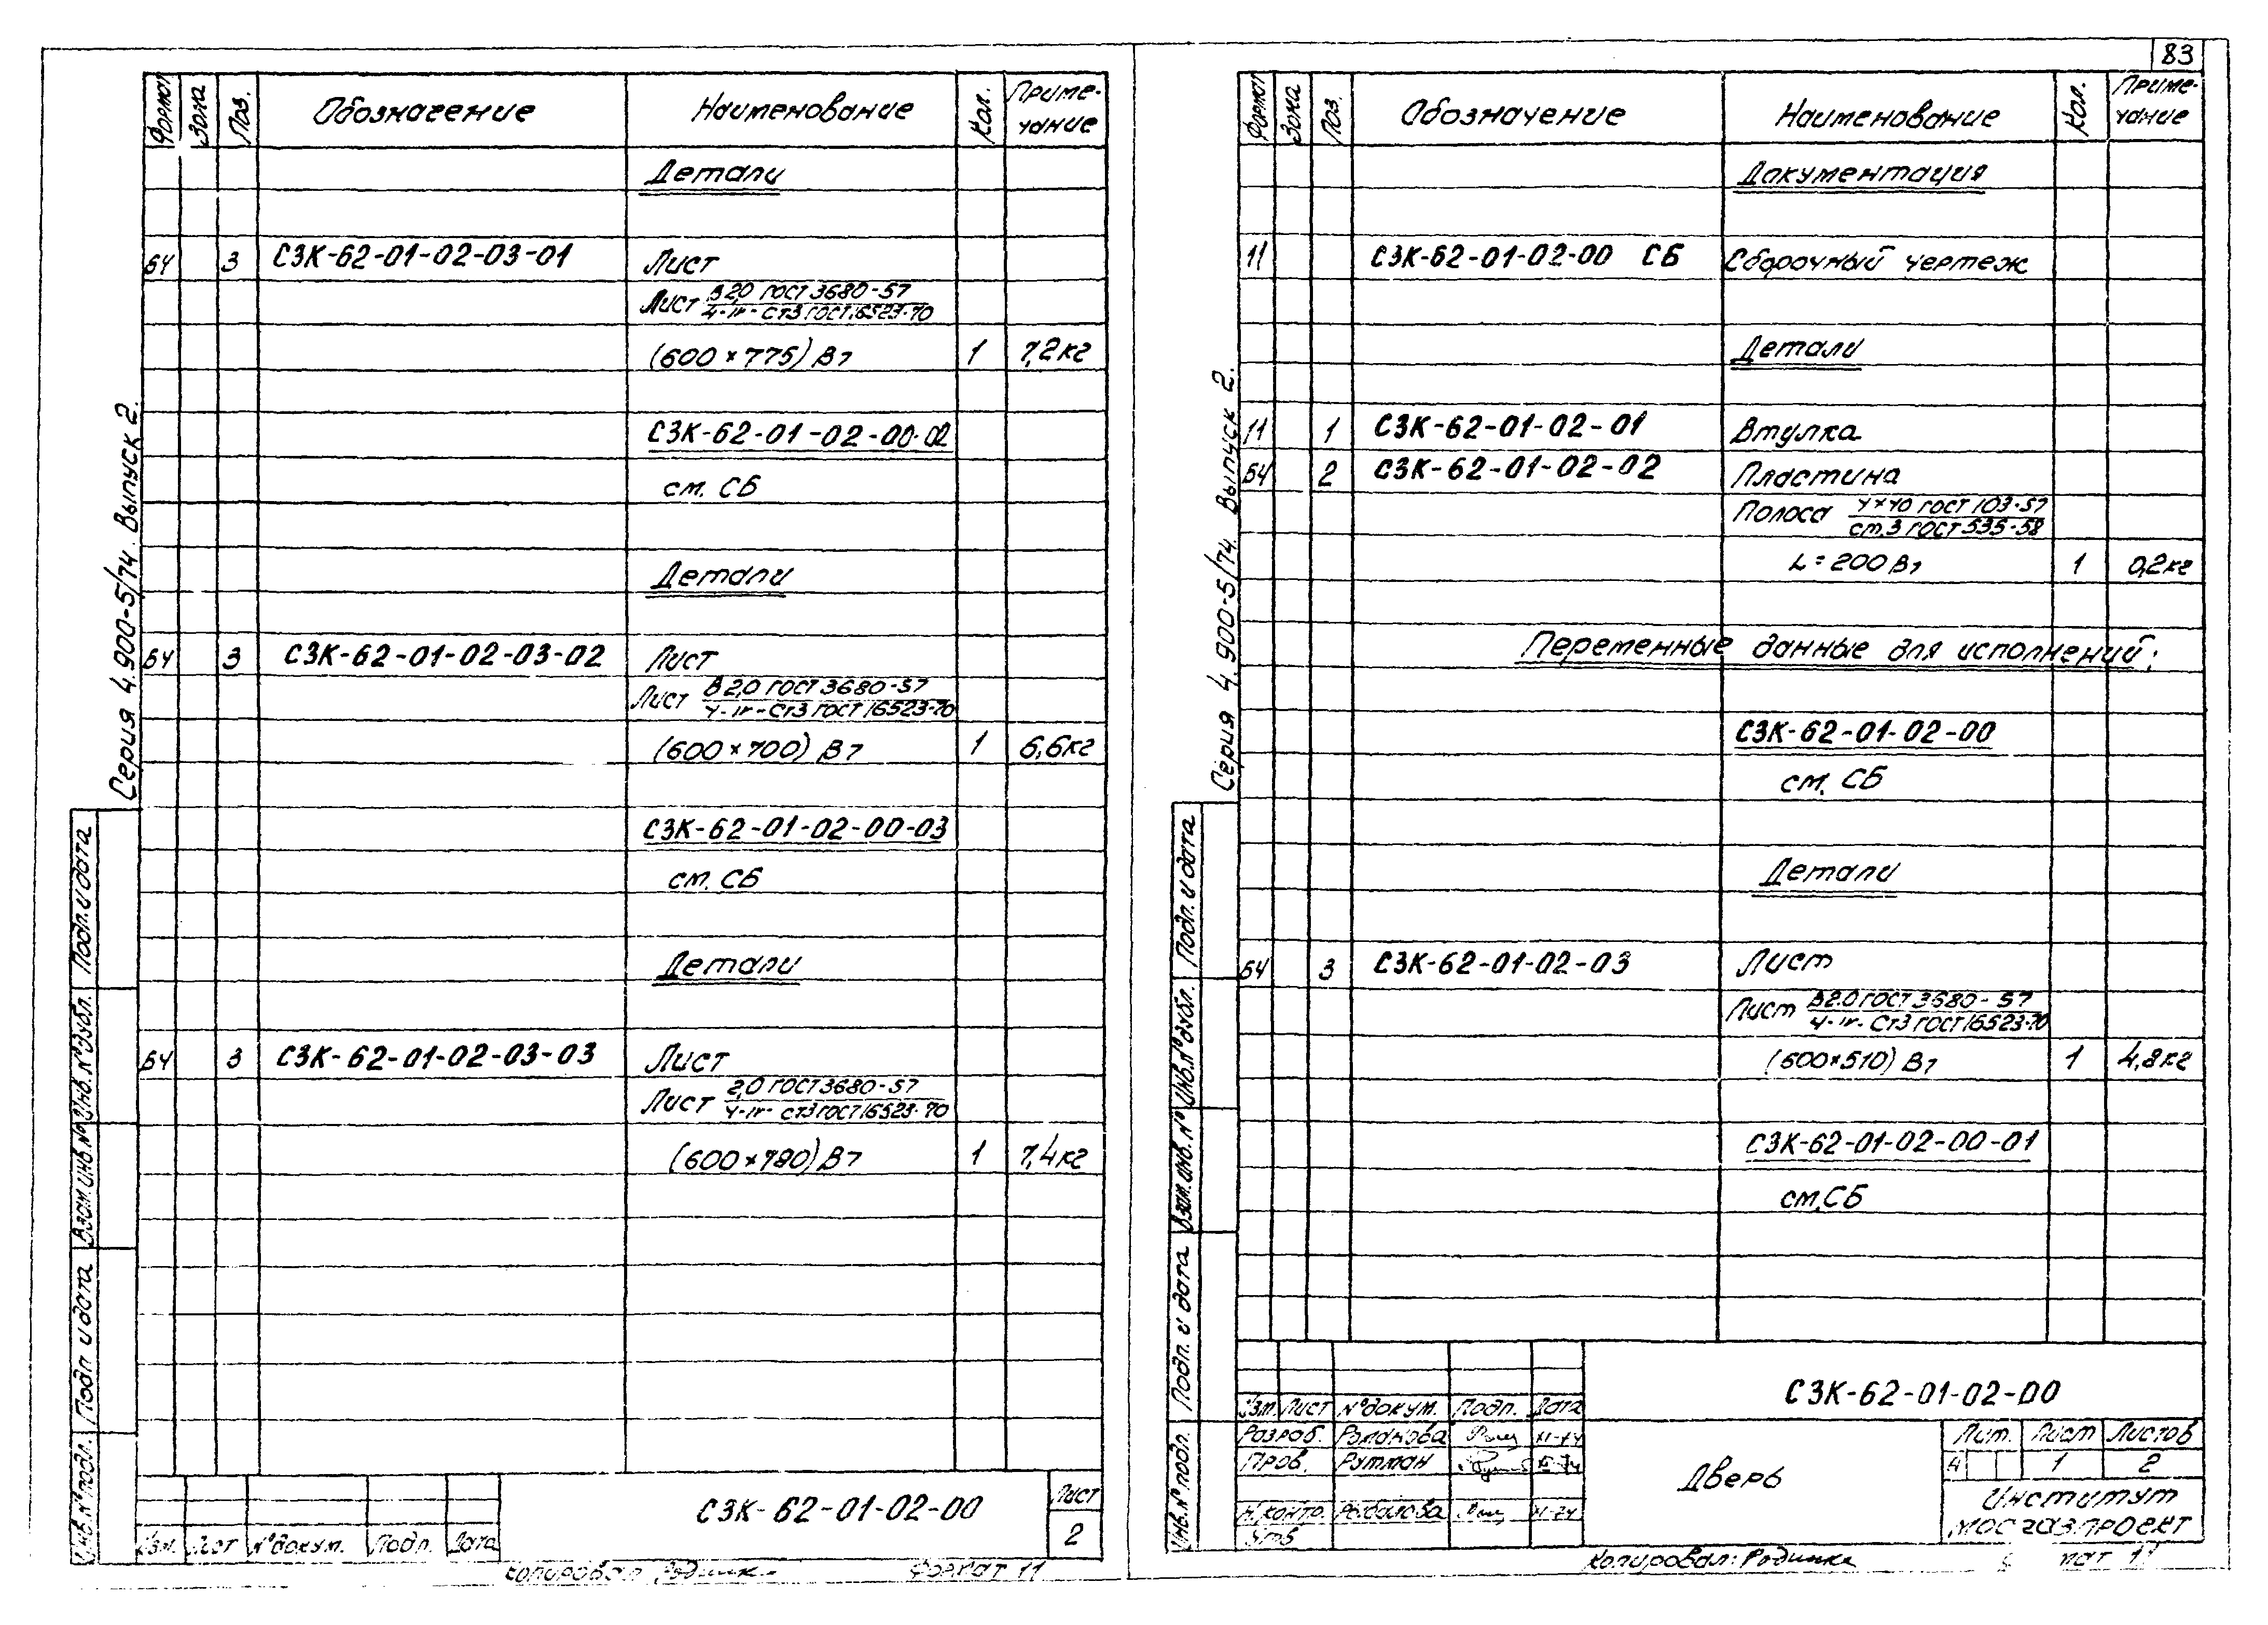 83
Формат Зона Поз. Обозначение Наименование Кол. Приме-чание
Детали
БЧ 3 СЗК-62-01-02-03-01 Лист
Лист В 2,0 ГОСТ 3680-57
4-IV-Ст3 ГОСТ 16523-70
(600×775) В7 1 7,2кг
СЗК-62-01-02-00-02
см. СБ
Детали
БЧ 3 СЗК-62-01-02-03-02 Лист
Лист В 2,0 ГОСТ 3680-57
4-IV-Ст3 ГОСТ 16523-70
(600×700) В7 1 6,6кг
СЗК-62-01-02-00-03
см. СБ
Детали
БЧ 3 СЗК-62-01-02-03-03 Лист
Лист 2,0 ГОСТ 3680-57
4-IV-Ст3 ГОСТ 16523-70
(600×780) В7 1 7,4кг
Серия 4.900-5/74. Выпуск 2.
Подп. и дата
Инв. №дубл.
Взам. инв. №
Подп. и дата
Инв. №подл.
СЗК-62-01-02-00
Лист
2
Изм. Лист №докум. Подп. Дата
Копировал Формат 11
Формат Зона Поз. Обозначение Наименование Кол. Приме-чание
Документация
11 СЗК-62-01-02-00 СБ Сборочный чертеж
Детали
11 1 СЗК-62-01-02-01 Втулка
БЧ 2 СЗК-62-01-02-02 Пластина
Полоса 4×40 ГОСТ 103-57
ст.3 ГОСТ 535-58
L=200 В7 1 0,2кг
Переменные данные для исполнений:
СЗК-62-01-02-00
см. СБ
Детали
БЧ 3 СЗК-62-01-02-03 Лист
Лист В 2,0 ГОСТ 3680-57
4-IV-Ст3 ГОСТ 16523-70
(600×510) В7 1 4,8кг
СЗК-62-01-02-00-01
см. СБ
Серия 4.900-5/74. Выпуск 2.
Подп. и дата
Инв. №дубл.
Взам. инв. №
Подп. и дата
Инв. №подл.
СЗК-62-01-02-00
Изм. Лист №докум. Подп. Дата
Разраб. Романова XI-74
Пров. Рутман XI-74
Н.контр. XI-74
Утв
Дверь
Лит. Лист Листов
И 1 2
Институт
МОСГАЗПРОЕКТ
Копировал: Родина